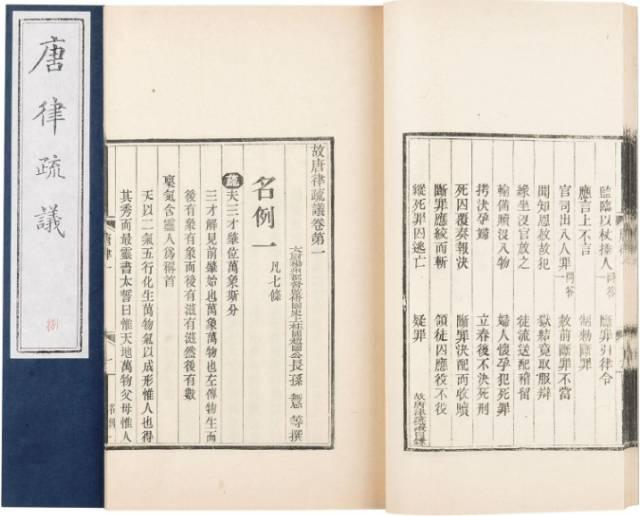 唐律疏議
捌
監臨以杖捶人 問答 斷罪引律令
應言上不言 制勅斷罪
官司出入人罪 問答 赦前斷罪不當
聞知恩赦故犯 獄結竟取服辯
緣坐沒官放之 徒流送配稽留
輸備贖沒入物 婦人懷孕犯死罪
拷決孕婦 立春後不決死刑
死囚覆奏報決 斷罪決配而收贖
斷罪應絞而斬 領徒囚應役不役
縱死罪囚逃亡 疑罪
故唐律疏議目錄
故唐律疏議卷第一
太尉揚州都督監修國史上柱國趙國公長孫 等撰
名例一 凡七條
疏 夫三才肇位萬象斯分
三才解見前肇始也萬象萬物也左傳物生而
後有象象而後有滋滋然後有數
稟氣含靈人爲稱首
天以二氣五行化生萬物氣以成形惟人也得
其秀而最靈書太誓曰惟天地萬物父母惟人
唐律一